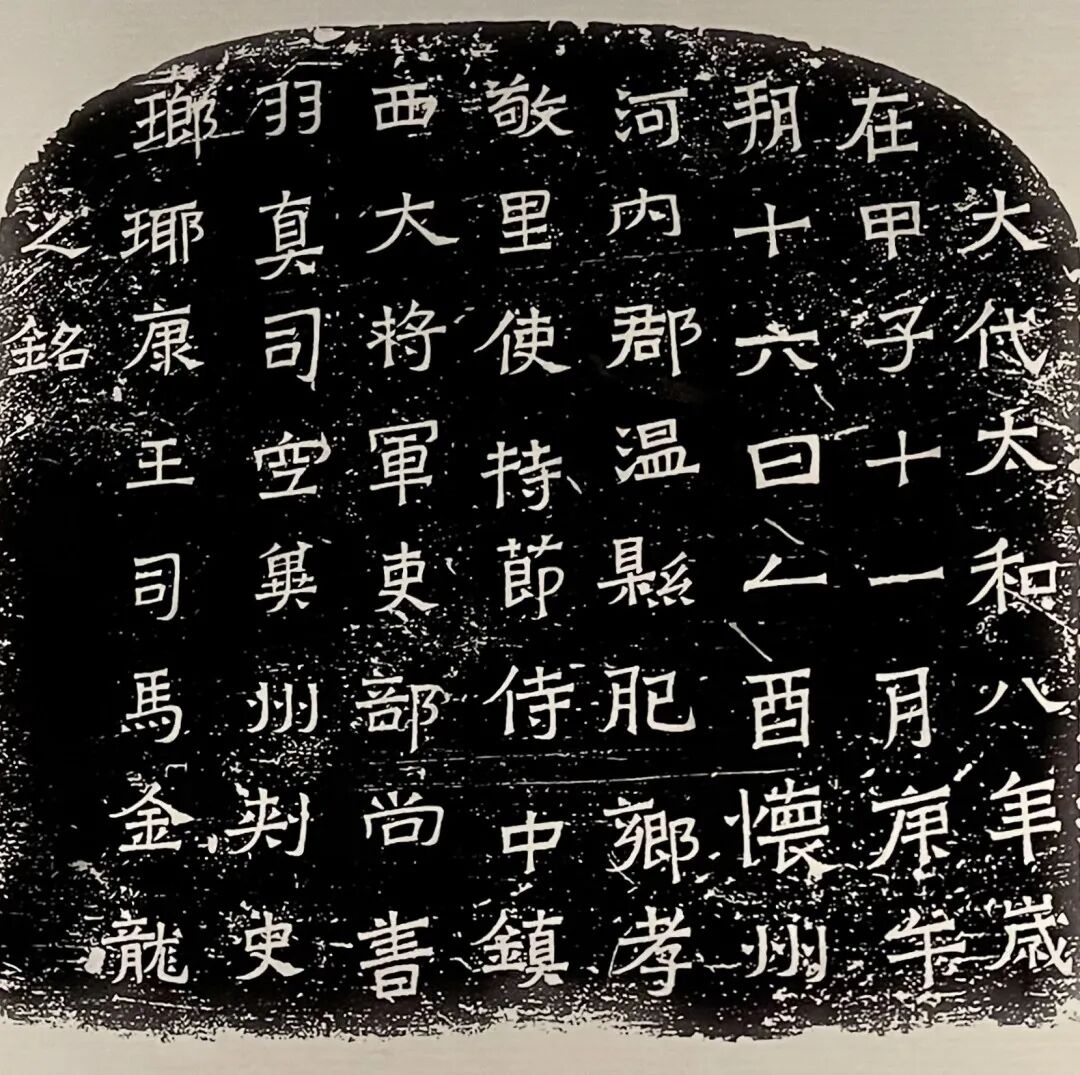 大代太和八年歲
在甲子十一月庚午
朔十六日乙酉懷州
河内郡温縣肥鄉孝
敬里使持節侍中鎮
西大將軍吏部尚書
羽真司空冀州刺史
瑯瑘康王司馬金龍
之銘